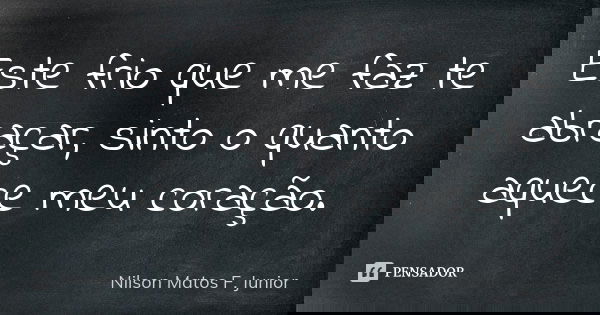 Este frio que me faz te
abraçar, sinto o quanto
aquece meu coração.
Nilson Matos F. Junior
PENSADOR